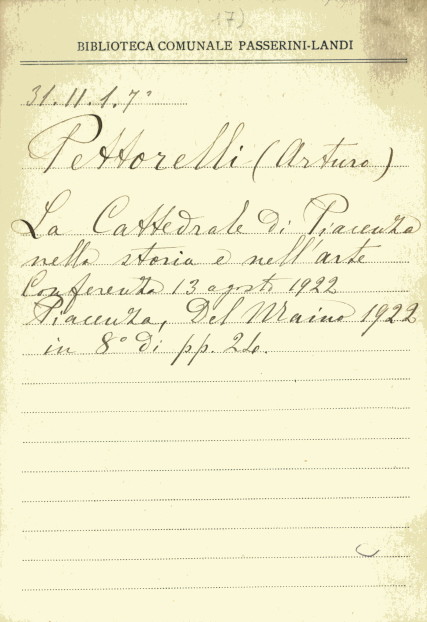 17)
BIBLIOTECA COMUNALE PASSERINI-LANDI
31.11.1.7°
Pettorelli (Arturo)
La Cattedrale di Piacenza
nella storia e nell'arte
Conferenza 13 agosto 1922
Piacenza, Del Maino 1922
in 8° di pp. 24.